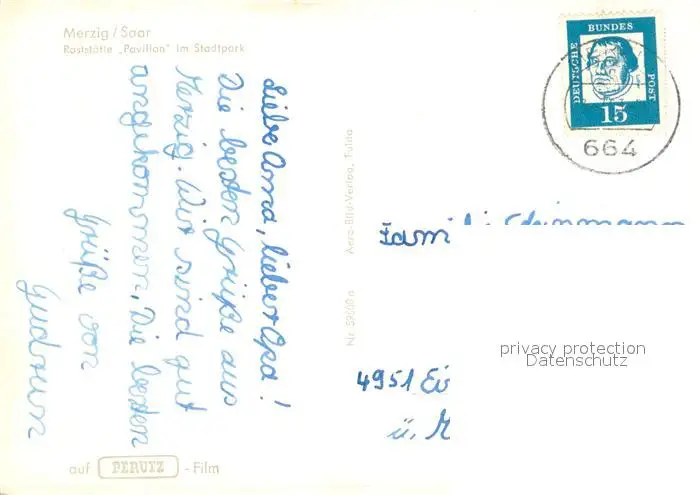 Merzig / Saar
Raststätte „Pavillon" im Stadtpark
Liebe Oma, lieber Opa!
Die besten Grüße aus
Merzig. Wir sind gut
angekommen. Die besten
Grüße von
Gudrun
auf PERUTZ - Film
Nr. 59608 a Aero-Bild-Verlag, Fulda
DEUTSCHE BUNDES POST
15
664
4951
ü. M
privacy protection
Datenschutz